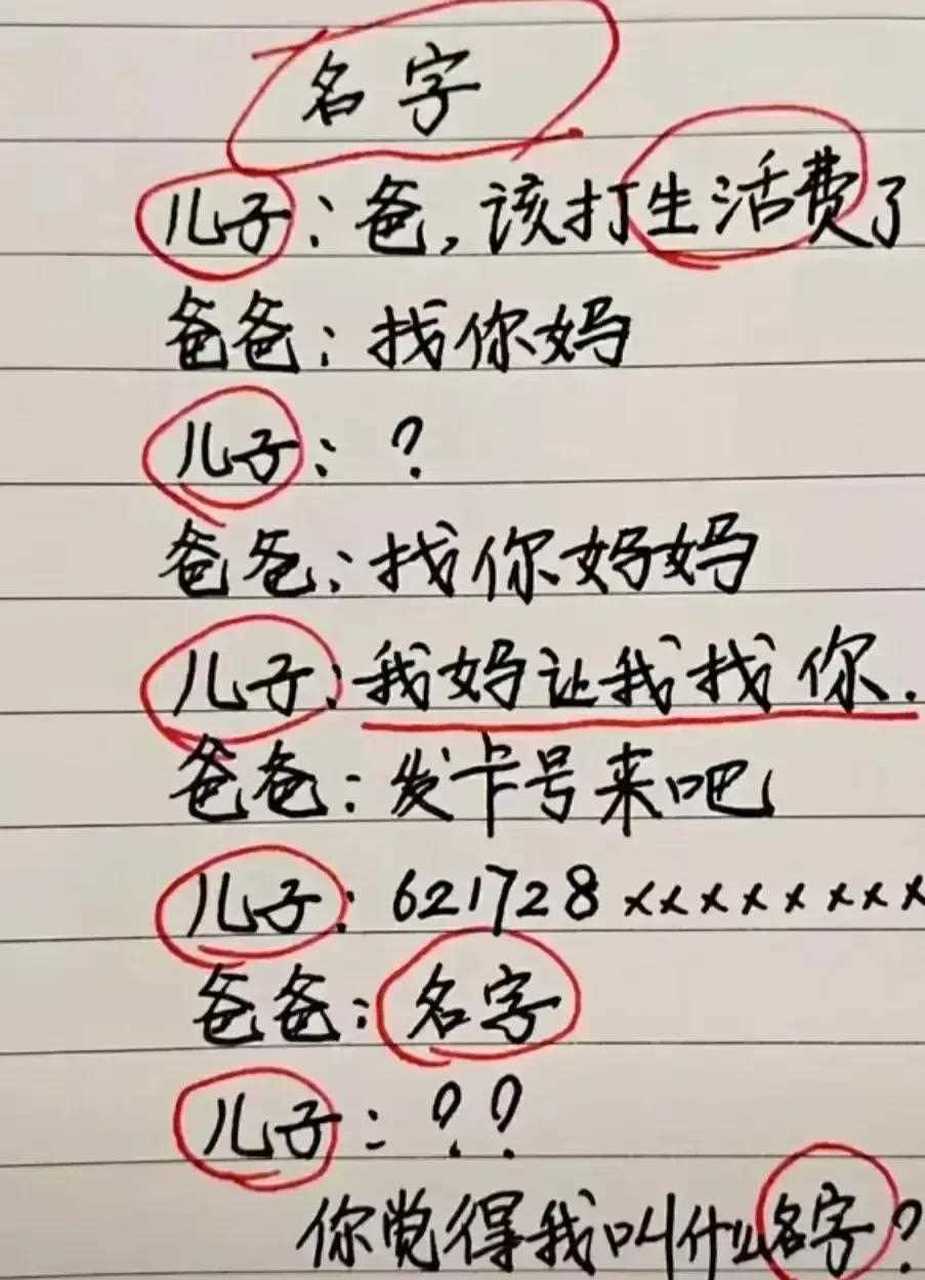 名字
儿子：爸，该打生活费了
爸爸：找你妈
儿子：？
爸爸：找你妈妈
儿子：我妈让我找你.
爸爸：发卡号来吧
儿子：621728xxxxxxxx
爸爸：名字
儿子：？？
你觉得我叫什么名字？